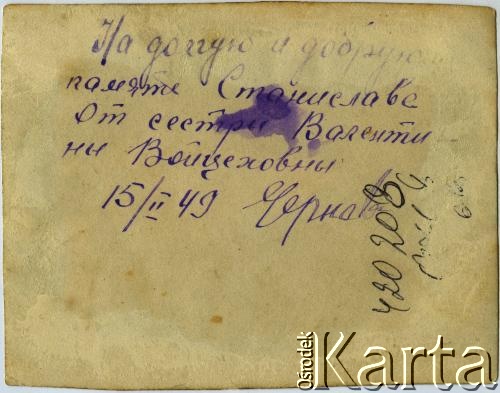 На долгую и добрую
память Станиславе
От сестри Валенти
ны Войцеховны
15/II 49 Черно
420 20B
Ośrodek Karta